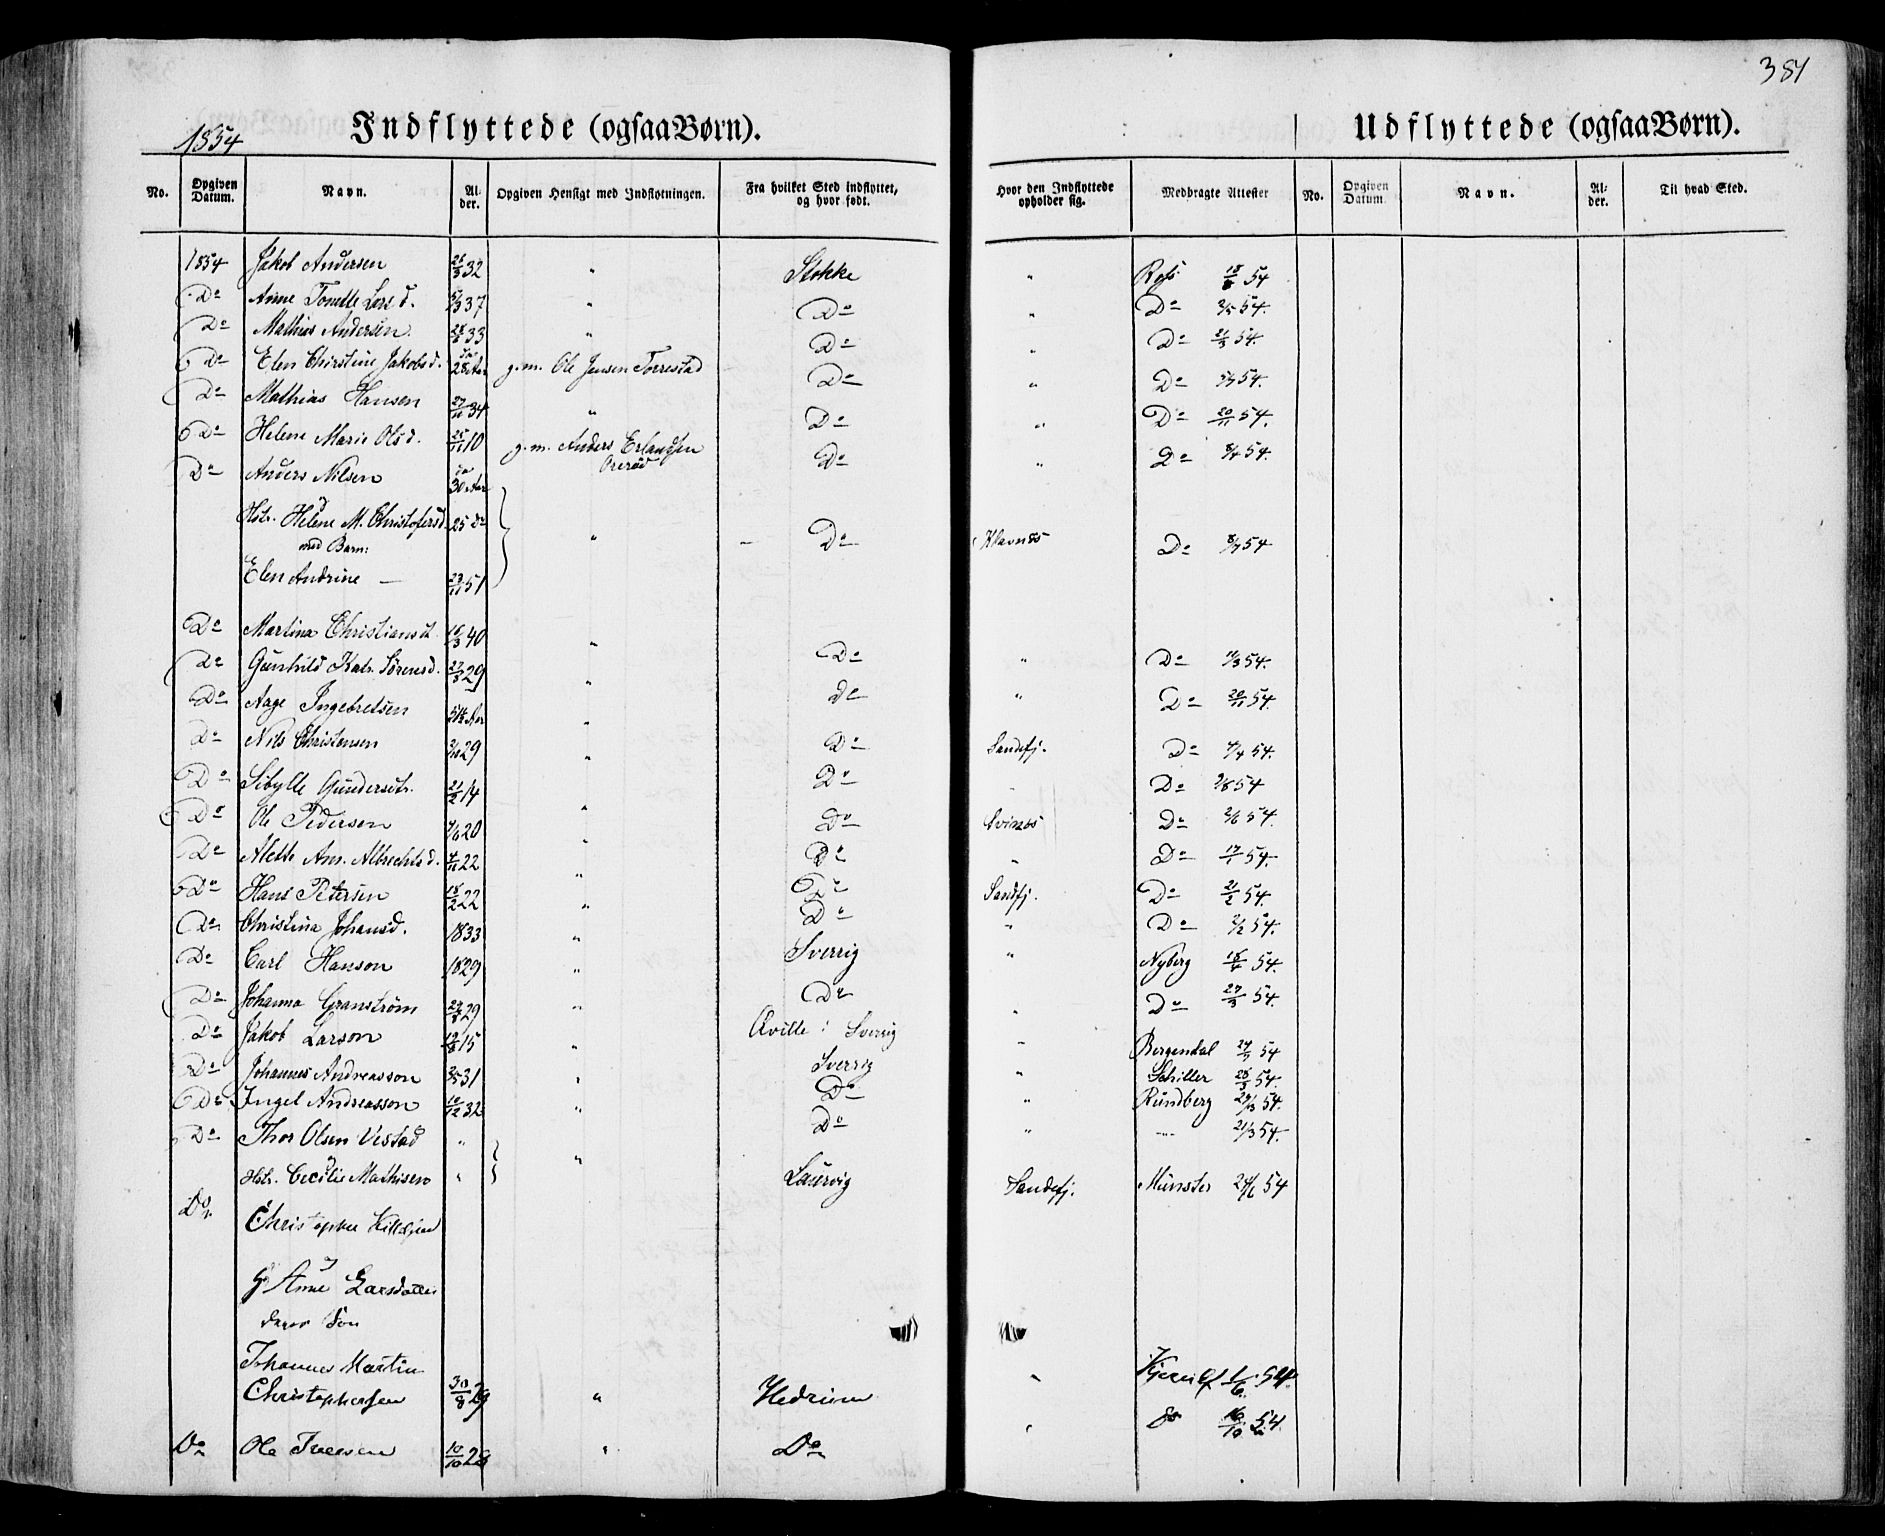 381
1854
Indflyttede (ogsaa Børn).
Udflyttede (ogsaa Børn).
No. Opgiven Datum. Navn. Alder. Opgiven Hensigt med Indflytningen. Fra hvilket Sted indflyttet, og hvor født. Hvor den Indflyttede opholder sig. Medbragte Attester No. Opgiven Datum Navn. Alder. Til hvad Sted.
1854 Jakob Andersen 32 " Stokke " 54
Do Anne Tonette Lars d. 37 " Do " Do 54.
Do Mathias Andersen. 33 " Do " Do 21/3 54.
Do Elen Christine Jakobsd. 28 Aar g. m. Ole Jensen Torrestad Do " Do 54.
Do Mathias Hansen 27/11 34 " Do " Do 20/11 54.
Do Helene Marie Olsd. 25/11 10 g. m. Anders Erlandsen Do " Do 54.
Do Anders Nilsen 30 Aar
Hstr. Helene M. Christofersd. 25 Do " Do Klavnes Do 54
med Barn:
Elen Andrine — 51
Do Martina Christiansd. 40 " Do " Do 54.
Do Gunhild Katr. Sørensd. 29 " Do " Do 20/11 54.
Do Aage Ingebretsen Aar " Do Sandefj. Do 54.
Do Nils Christensen 29 " Do Do 54
Do Sibylle Gundersdtr. 21/2 14 " Do Svinøes Do 54.
Do Ole Pedersen 20 " Do " Do 54.
Do Alette Ans. Albrechtsd. 22 " Do Sandfj. Do 21/2 54.
Do Hans Petersen 18/2 22 " Do " Do 54.
Do Christina Johansd. 1833 " Sverrig " Nyberg 18/4 54.
Do Carl Hanson 1829 " Do " Do 27/3 54.
Do Johanna Granstrøm 29 " Qville i Sverrig " Bergendal 54
Do Jakob Larson 15 " Sverrig " Schiller 54.
Do Johannes Andreasson 31 " Do " Rundberg 54.
Do Ingel Andreasson 10/12 32 " Do " " 21/3 54.
Do Thor Olsen Vestad "
Hstr. Cecilie Mathisen " " Laurvig Sandefj. Münster 54
Do Christopher
G Anne Larsdatter
deres Søn
Johannes Martin
Christophersen 30/8 29 " Hedrum " 1/6 54.
Do Ole Iversen 10/10 28 " Do " do 54.